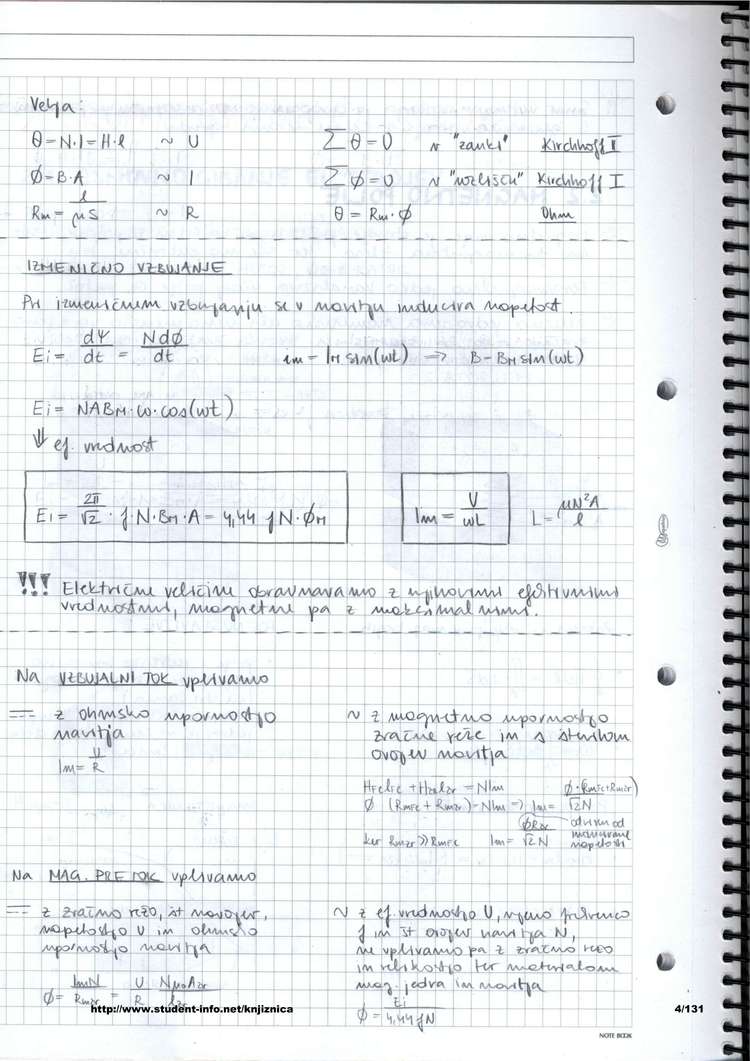 Velja:
θ = N·I = H·l ~ U ∑θ = 0 v "zanki" Kirchhoff II
Φ = B·A ~ I ∑Φ = 0 v "vozlišču" Kirchhoff I
Rm = l/μS ~ R θ = Rm·Φ Ohm
IZMENIČNO VZBUJANJE
Pri izmeničnem vzbujanju se v navitju inducira napetost.
Ei = dΨ/dt = NdΦ/dt im = IM sin(ωt) ⇒ B = BM sin(ωt)
Ei = NABM·ω·cos(ωt)
⇓ ef. vrednost
Ei = 2π/√2 · f·N·BM·A = 4,44 f N·ΦM Im = U/ωL L = μN²A/l
!!! Električne veličine obravnavamo z njihovimi efektivnimi
vrednostmi, magnetne pa z maksimalnimi.
Na VZBUJALNI TOK vplivamo
z ohmsko upornostjo
navitja
Im = U/R
~ z magnetno upornostjo
zračne reže in s številom
ovojev navitja
HFelFe + Hzrlzr = NIm
Φ (RmFe + Rmzr) = NIm ⇒ Im = Φ·(RmFe+Rmzr)/√2N
ker Rmzr >> RmFe Im = ΦRzr/√2N odvisen od
inducirane
napetosti
Na MAG. PRETOK vplivamo
z zračno režo, št navojev,
napetostjo U in ohmsko
upornostjo navitja
Φ = ImN/Rmzr = U/R Nμ0Azr/lzr
~ z ef. vrednostjo U, njeno frekvenco
f in št ovojev navitja N,
ne vplivamo pa z zračno režo
in velikostjo ter materialom
mag. jedra in navitja
Φ = Ei/4,44fN
http://www.student-info.net/knjiznica 4/131
NOTE BOOK